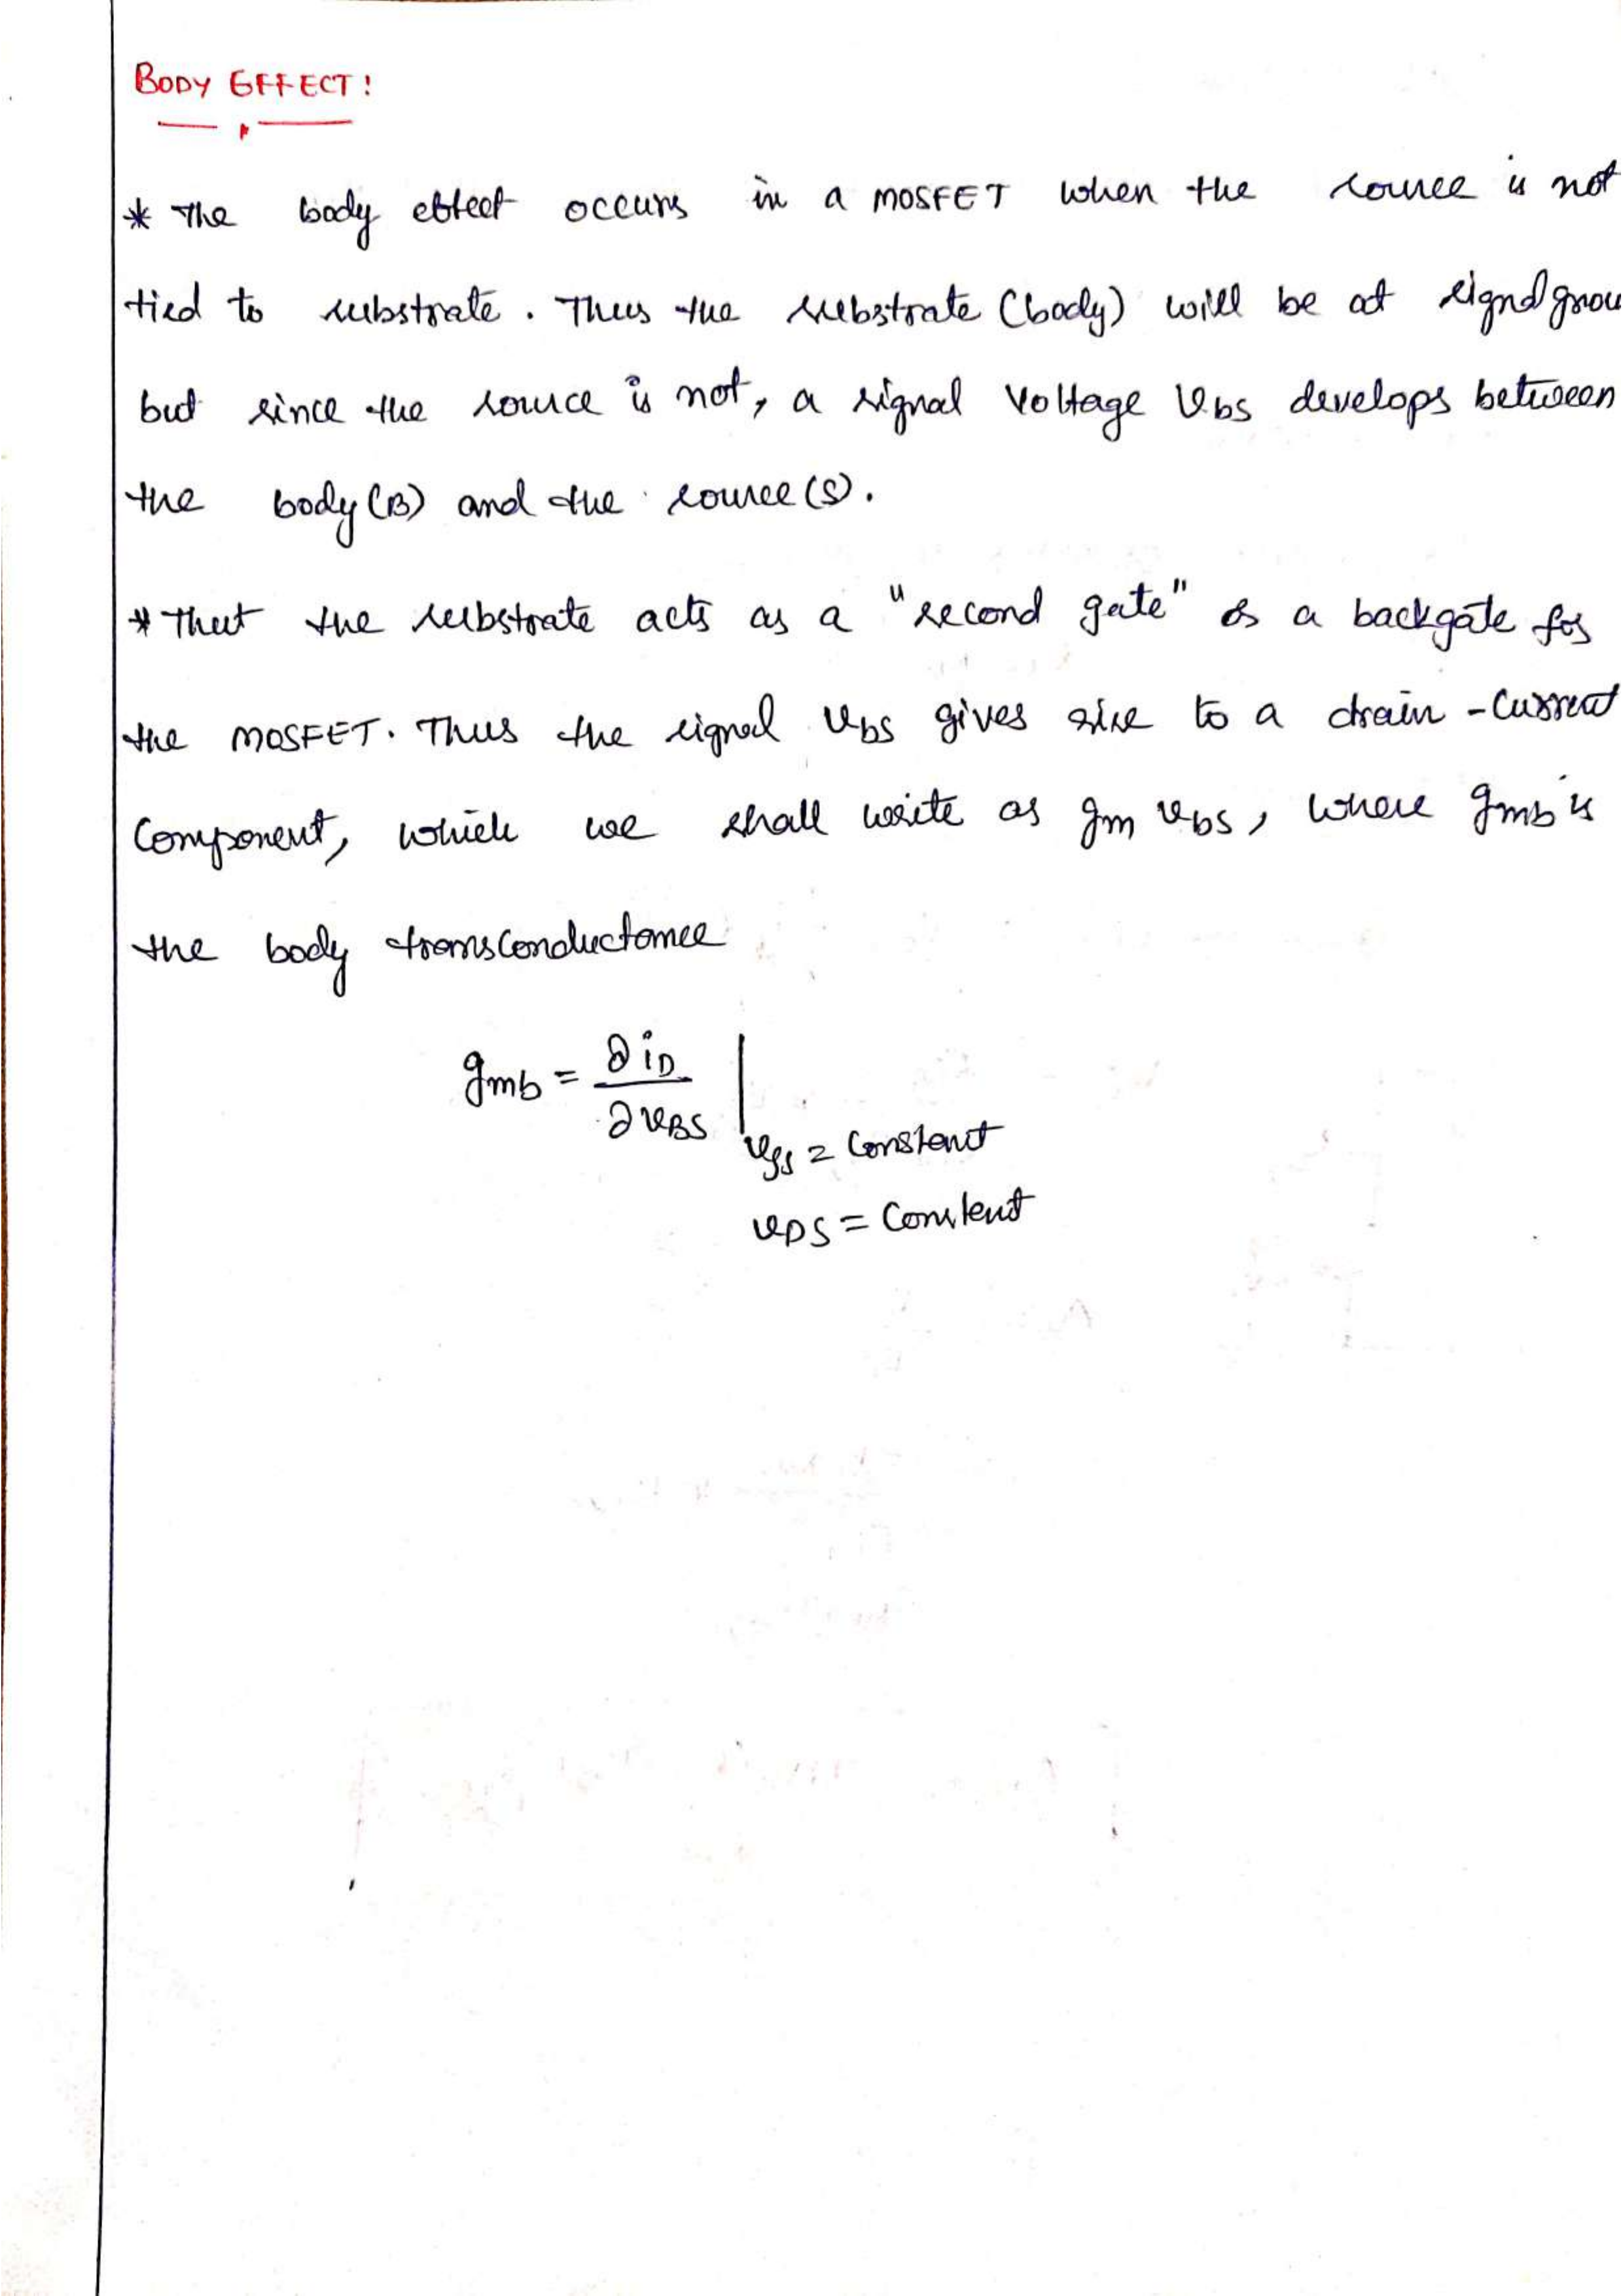 BODY EFFECT:
* The body effect occurs in a MOSFET when the source is not
tied to substrate. Thus the substrate (body) will be at signal grou
but since the source is not, a signal voltage vbs develops between
the body (B) and the source (S).
* That the substrate acts as a "second gate" or a backgate for
the MOSFET. Thus the signal vbs gives rise to a drain-current
component, which we shall write as gm vbs, where gmb is
the body transconductance
gmb = ∂iD / ∂vBS |
vgs = constant
vDS = constant